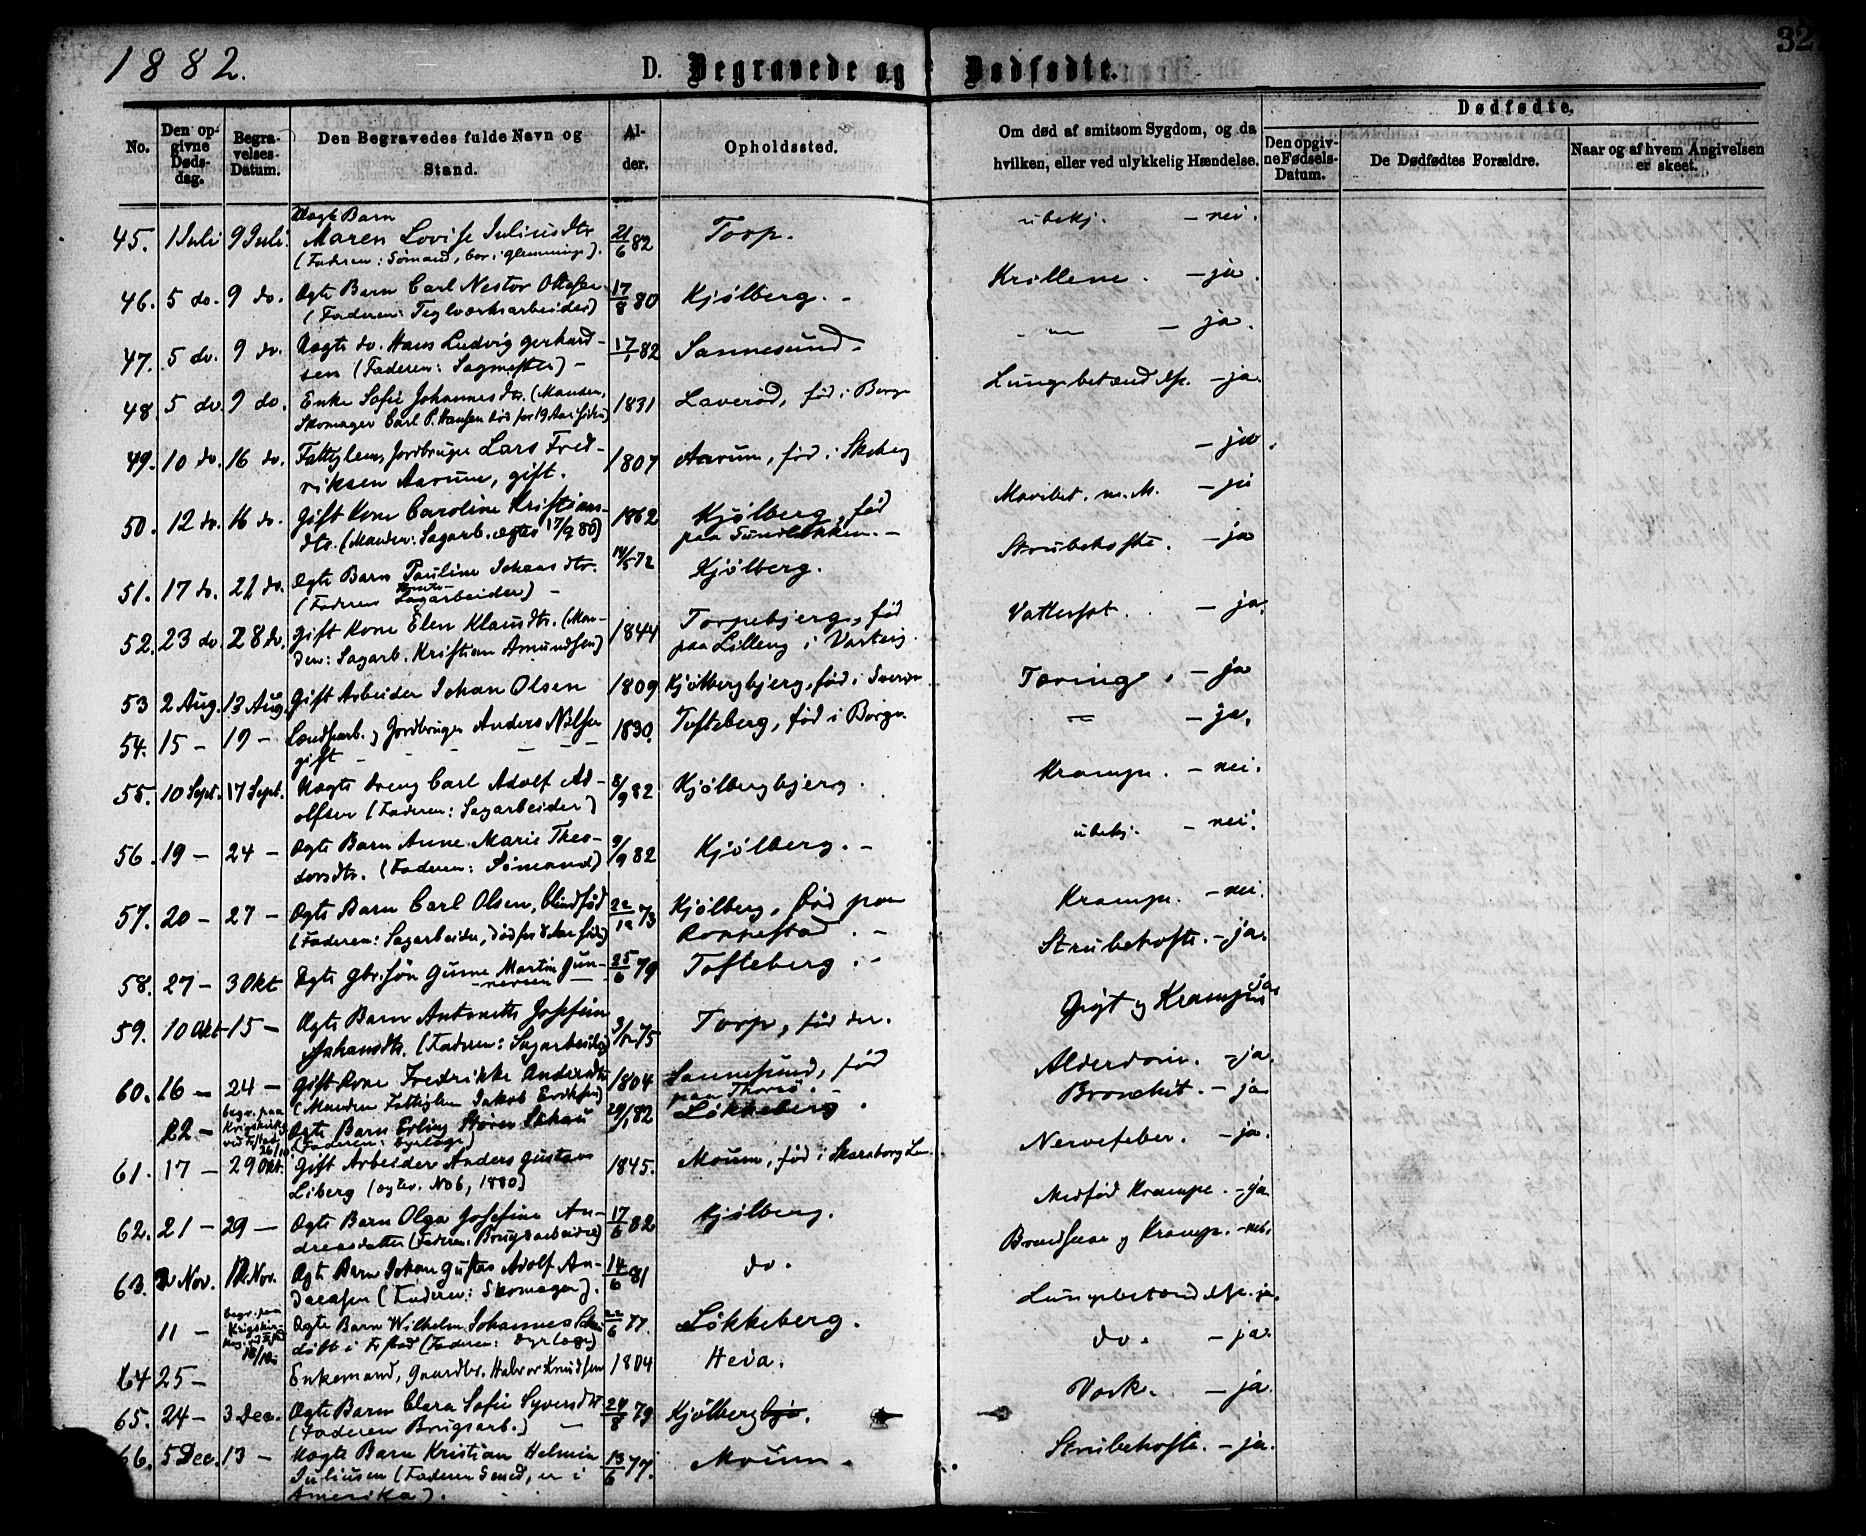 1882.
D. Begravede og Dødfødte.
32
No.
Den opgivne Dødsdag.
Begravelses-Datum.
Den Begravedes fulde Navn og Stand.
Alder.
Opholdssted.
Om død af smitsom Sygdom, og da hvilken, eller ved ulykkelig Hændelse.
Dødfødte.
Den opgivne Fødsels-Datum.
De Dødfødtes Forældre.
Naar og af hvem Angivelsen er skeet.
Uægte Barn
45. 1 Juli 9 Juli. Maren Lovise Juliusdtr. 21/6 82 Torp. ubekj. – nei.
(Faderen: Sømand, bor i Glemminge).
46. 5 do. 9 do. Ægte Barn Carl Nestor Olsen 17/8 80 Kjølberg. – Krillene. – ja.
(Faderen: Teglværksarbeider)
47. 5 do. 9 do. Uægte do. Hans Ludvig Gerhard- 17/1 82 Sannesund. – ja.
sen (Faderen: Sagmester) –
48. 5 do. 9 do. Enke Sofie Johannesdtr. (Manden, 1831 Laverød, fød i Borge Lungebetændelse. – ja.
Skomager Carl P. Hansen død for 19 Aar siden)
49. 10 do. 16 do. Fattiglem, Jordbruger Lars Fred- 1807 Aarum, fød i Skeberg – ja.
riksen Aarum, gift.
50. 12 do. 16 do. Gift Kone Caroline Kristians- 1862 Kjølberg, fød – ja
dtr. (Manden: Sagarb. ægtev. 17/9 80) paa
51. 17 do. 21 do. Ægte Barn Pauline Johansdtr. 14/5 72 Kjølberg. Strubehoste. – ja
(Faderen Sagarbeider) –
52. 23 do. 28 do. Gift Kone Elen Klausdtr. (Man- 1844 Torpebjerg, fød Vattersot. – ja.
den: Sagarb. Kristian Amundsen) paa Lilleng i Varteig.
53 2 Aug. 13 Aug. Gift Arbeider Johan Olsen 1809 Kjølbergbjerg, fød i Sverige Tæring. – ja
54. 15 – 19 – Landsarb. og Jordbruger Anders Nilsen 1830. Tofteberg, fød i Borge. – ja.
gift – – – – –
55. 10 Sept. 17 Sept. Uægte Dreng Carl Adolf Ad- 8/9 82 Kjølbergbjerg. Krampe. – nei.
olfsen (Faderen: Sagarbeider)
56. 19 – 24 – Ægte Barn Anne Marie Theo- 9/9 82 Kjølberg. – ubekj. – nei.
dorsdtr. (Faderen: Sømand)
57. 20 – 27 – Ægte Barn Carl Olsen, blindfød 22/12 73 Kjølberg, fød paa Krampe. – nei.
(Faderen: Sagarbeider, død for 8 Aar siden) Roppestad. –
58. 27 – 3 Okt Ægte Gbr. søn Gunne Martin Gun- 25/6 79 Tofteberg. – Strubehoste. – ja.
– nersen –
59. 10 Okt 15 – Ægte Barn Antonette Josefine 3/1 75 Torp, fød der. Gigt og Krampe ja.
Johansdtr. (Faderen: Sagarbeider)
60. 16 – 24 – Gift Kone Fredrikke Andersdtr 1804 Sannesund, fød Alderdom. – ja.
(Manden Fattiglem Jakob Eriksen) paa Thorsø. –
22 – begr. paa Krigskirkeg. ved Fr.stad 26/10. Ægte Barn Erling Støren Schau 29/1 82 Løkkeberg. Bronchit. – ja
(Faderen: Dyrlæge)
61. 17 – 29 Okt. Gift Arbeider Anders Gustav 1845. Moum, fød i Skaraborg Len. Nervefeber. – ja.
Liberg (ægtev. No 6, 1880)
62. 21 – 29 – Ægte Barn Olga Josefine An- 17/6 82 Kjølberg. Medfød Krampe. – ja
dreasdatter (Faderen: Brugsarbeider)
63. 2 Nov. 12 Nov. Ægte Barn Johan Gustav Adolf An- 14/6 81 do. Brændsaar og Krampe. – nei.
dreasen (Faderen: Skomager).
11 – begr. paa Krigskirkeg. ved Fr.stad Ægte Barn Wilhelm Johannes 22/6 77. Løkkeberg. Lungebetændelse. ja.
døbt i Fr.stad (Faderen: Dyrlæge)
64 25 – Enkemand, Gaardbr. Halvor Knudsen 1804 Heia. do. – ja.
65. 24 – 3 Dec. Ægte Barn Clara Sofie Syversdtr 24/8 79 Kjølberg. Værk. – ja.
(Faderen Brugsarb.) –
66. 5 Dec. 13 – Uægte Barn Kristian Helmin 13/6 77. Moum. Strubehoste. – ja.
Juliusen (Faderen Smed, er i
Amerika).